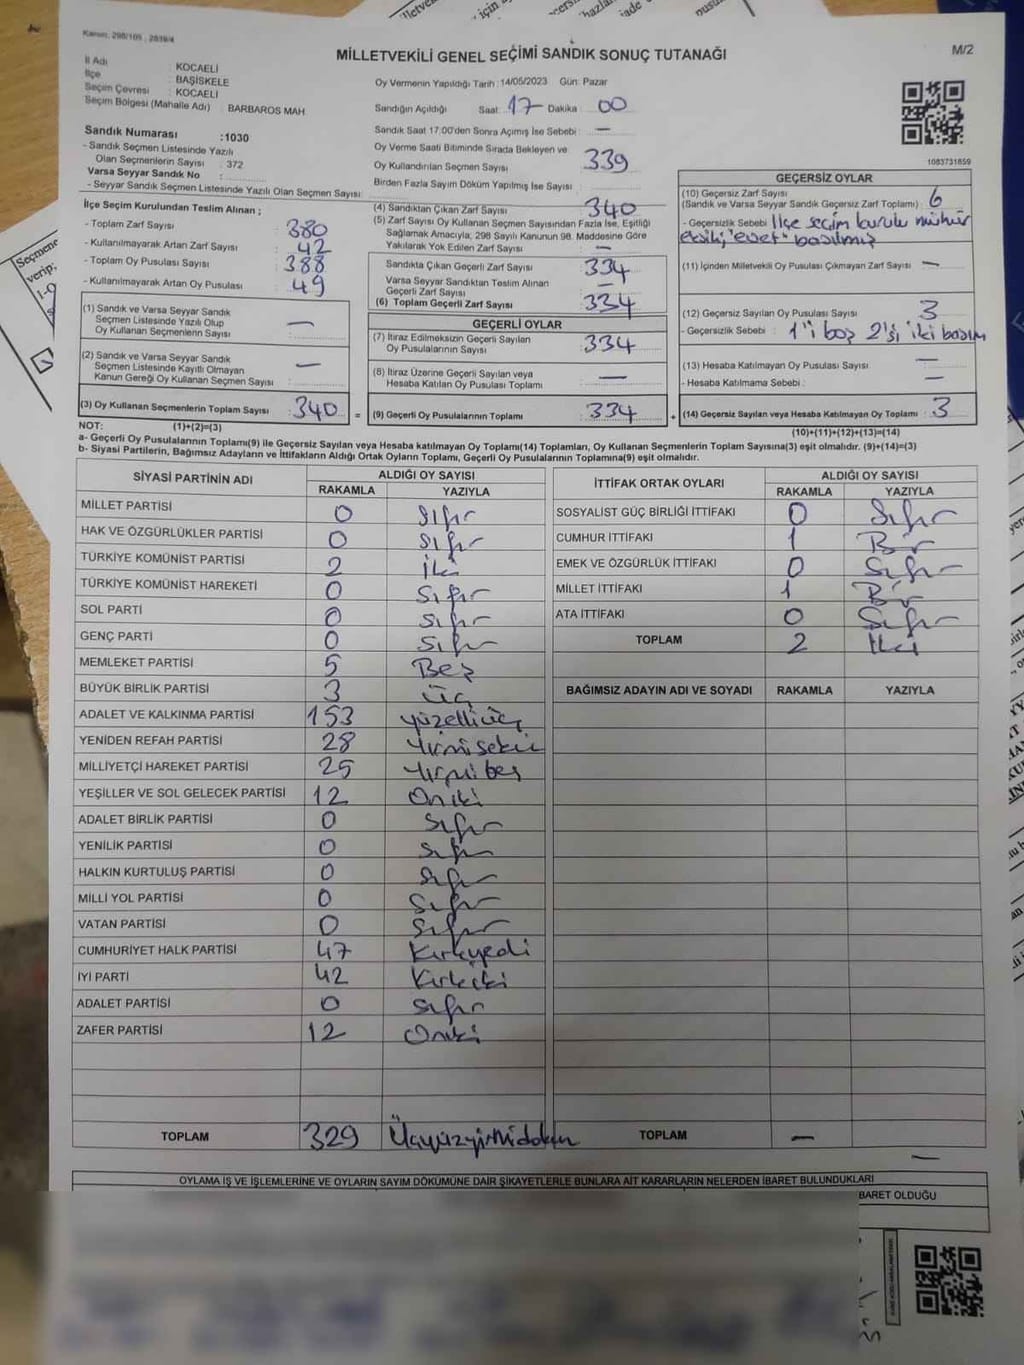 Kanun, 298/105 , 2839/4
MİLLETVEKİLİ GENEL SEÇİMİ SANDIK SONUÇ TUTANAĞI
M/2
İl Adı : KOCAELİ
İlçe : BAŞİSKELE
Seçim Çevresi : KOCAELİ
Seçim Bölgesi (Mahalle Adı) BARBAROS MAH
Sandık Numarası :1030
- Sandık Seçmen Listesinde Yazılı
Olan Seçmenlerin Sayısı : 372
Varsa Seyyar Sandık No :
- Seyyar Sandık Seçmen Listesinde Yazılı Olan Seçmen Sayısı
Oy Vermenin Yapıldığı Tarih : 14/05/2023 Gün: Pazar
Sandığın Açıldığı Saat: 17 Dakika : 00
Sandık Saat 17.00'den Sonra Açılmış İse Sebebi : —
Oy Verme Saati Bitiminde Sırada Bekleyen ve
Oy Kullandırılan Seçmen Sayısı 339
Birden Fazla Sayım Döküm Yapılmış İse Sayısı :
1083731859
İlçe Seçim Kurulundan Teslim Alınan ;
- Toplam Zarf Sayısı : 380
- Kullanılmayarak Artan Zarf Sayısı : 42
- Toplam Oy Pusulası Sayısı : 388
- Kullanılmayarak Artan Oy Pusulası : 49
(1) Sandık ve Varsa Seyyar Sandık
Seçmen Listesinde Yazılı Olup
Oy Kullanan Seçmenlerin Sayısı : —
(2) Sandık ve Varsa Seyyar Sandık
Seçmen Listesinde Kayıtlı Olmayan
Kanun Gereği Oy Kullanan Seçmen Sayısı : —
(3) Oy Kullanan Seçmenlerin Toplam Sayısı : 340 =
(4) Sandıktan Çıkan Zarf Sayısı : 340
(5) Zarf Sayısı Oy Kullanan Seçmen Sayısından Fazla İse, Eşitliği
Sağlamak Amacıyla, 298 Sayılı Kanunun 98. Maddesine Göre
Yakılarak Yok Edilen Zarf Sayısı : —
Sandıkta Çıkan Geçerli Zarf Sayısı : 334
Varsa Seyyar Sandıktan Teslim Alınan
Geçerli Zarf Sayısı : —
(6) Toplam Geçerli Zarf Sayısı : 334
GEÇERLİ OYLAR
(7) İtiraz Edilmeksizin Geçerli Sayılan
Oy Pusulalarının Sayısı : 334
(8) İtiraz Üzerine Geçerli Sayılan veya
Hesaba Katılan Oy Pusulası Toplamı : —
(9) Geçerli Oy Pusulalarının Toplamı : 334 +
GEÇERSİZ OYLAR
(10) Geçersiz Zarf Sayısı : 6
(Sandık ve Varsa Seyyar Sandık Geçersiz Zarf Toplamı)
- Geçersizlik Sebebi İlçe seçim kurulu mühür
eksik, 'evet' basılmış
(11) İçinden Milletvekili Oy Pusulası Çıkmayan Zarf Sayısı : —
(12) Geçersiz Sayılan Oy Pusulası Sayısı : 3
- Geçersizlik Sebebi : 1'i boş 2'si iki basım
(13) Hesaba Katılmayan Oy Pusulası Sayısı : —
- Hesaba Katılmama Sebebi : —
(14) Geçersiz Sayılan veya Hesaba Katılmayan Oy Toplamı : 3
NOT: (1)+(2)=(3)
(10)+(11)+(12)+(13)=(14)
a- Geçerli Oy Pusulalarının Toplamı(9) ile Geçersiz Sayılan veya Hesaba katılmayan Oy Toplamı(14) Toplamları, Oy Kullanan Seçmenlerin Toplam Sayısına(3) eşit olmalıdır. (9)+(14)=(3)
b- Siyasi Partilerin, Bağımsız Adayların ve İttifakların Aldığı Ortak Oyların Toplamı, Geçerli Oy Pusulalarının Toplamına(9) eşit olmalıdır.
SİYASİ PARTİNİN ADI ALDIĞI OY SAYISI
RAKAMLA YAZIYLA
MİLLET PARTİSİ 0 Sıfır
HAK VE ÖZGÜRLÜKLER PARTİSİ 0 Sıfır
TÜRKİYE KOMÜNİST PARTİSİ 2 İki
TÜRKİYE KOMÜNİST HAREKETİ 0 Sıfır
SOL PARTİ 0 Sıfır
GENÇ PARTİ 0 Sıfır
MEMLEKET PARTİSİ 5 Beş
BÜYÜK BİRLİK PARTİSİ 3 üç
ADALET VE KALKINMA PARTİSİ 153 yüzelliüç
YENİDEN REFAH PARTİSİ 28 Yirmisekiz
MİLLİYETÇİ HAREKET PARTİSİ 25 Yirmibeş
YEŞİLLER VE SOL GELECEK PARTİSİ 12 Oniki
ADALET BİRLİK PARTİSİ 0 Sıfır
YENİLİK PARTİSİ 0 Sıfır
HALKIN KURTULUŞ PARTİSİ 0 Sıfır
MİLLİ YOL PARTİSİ 0 Sıfır
VATAN PARTİSİ 0 Sıfır
CUMHURİYET HALK PARTİSİ 47 Kırkyedi
İYİ PARTİ 42 Kırkiki
ADALET PARTİSİ 0 Sıfır
ZAFER PARTİSİ 12 Oniki
TOPLAM 329 Üçyüzyirmidokuz
İTTİFAK ORTAK OYLARI ALDIĞI OY SAYISI
RAKAMLA YAZIYLA
SOSYALİST GÜÇ BİRLİĞİ İTTİFAKI 0 Sıfır
CUMHUR İTTİFAKI 1 Bir
EMEK VE ÖZGÜRLÜK İTTİFAKI 0 Sıfır
MİLLET İTTİFAKI 1 Bir
ATA İTTİFAKI 0 Sıfır
TOPLAM 2 İki
BAĞIMSIZ ADAYIN ADI VE SOYADI RAKAMLA YAZIYLA
TOPLAM — —
OYLAMA İŞ VE İŞLEMLERİNE VE OYLARIN SAYIM DÖKÜMÜNE DAİR ŞİKAYETLERLE BUNLARA AİT KARARLARIN NELERDEN İBARET BULUNDUKLARI
BARET OLDUĞU